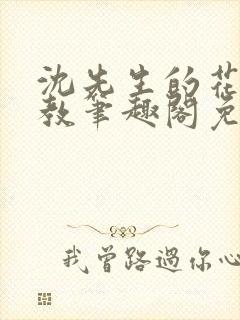 沈先生的花
教笔趣阁免
我曾路過你心